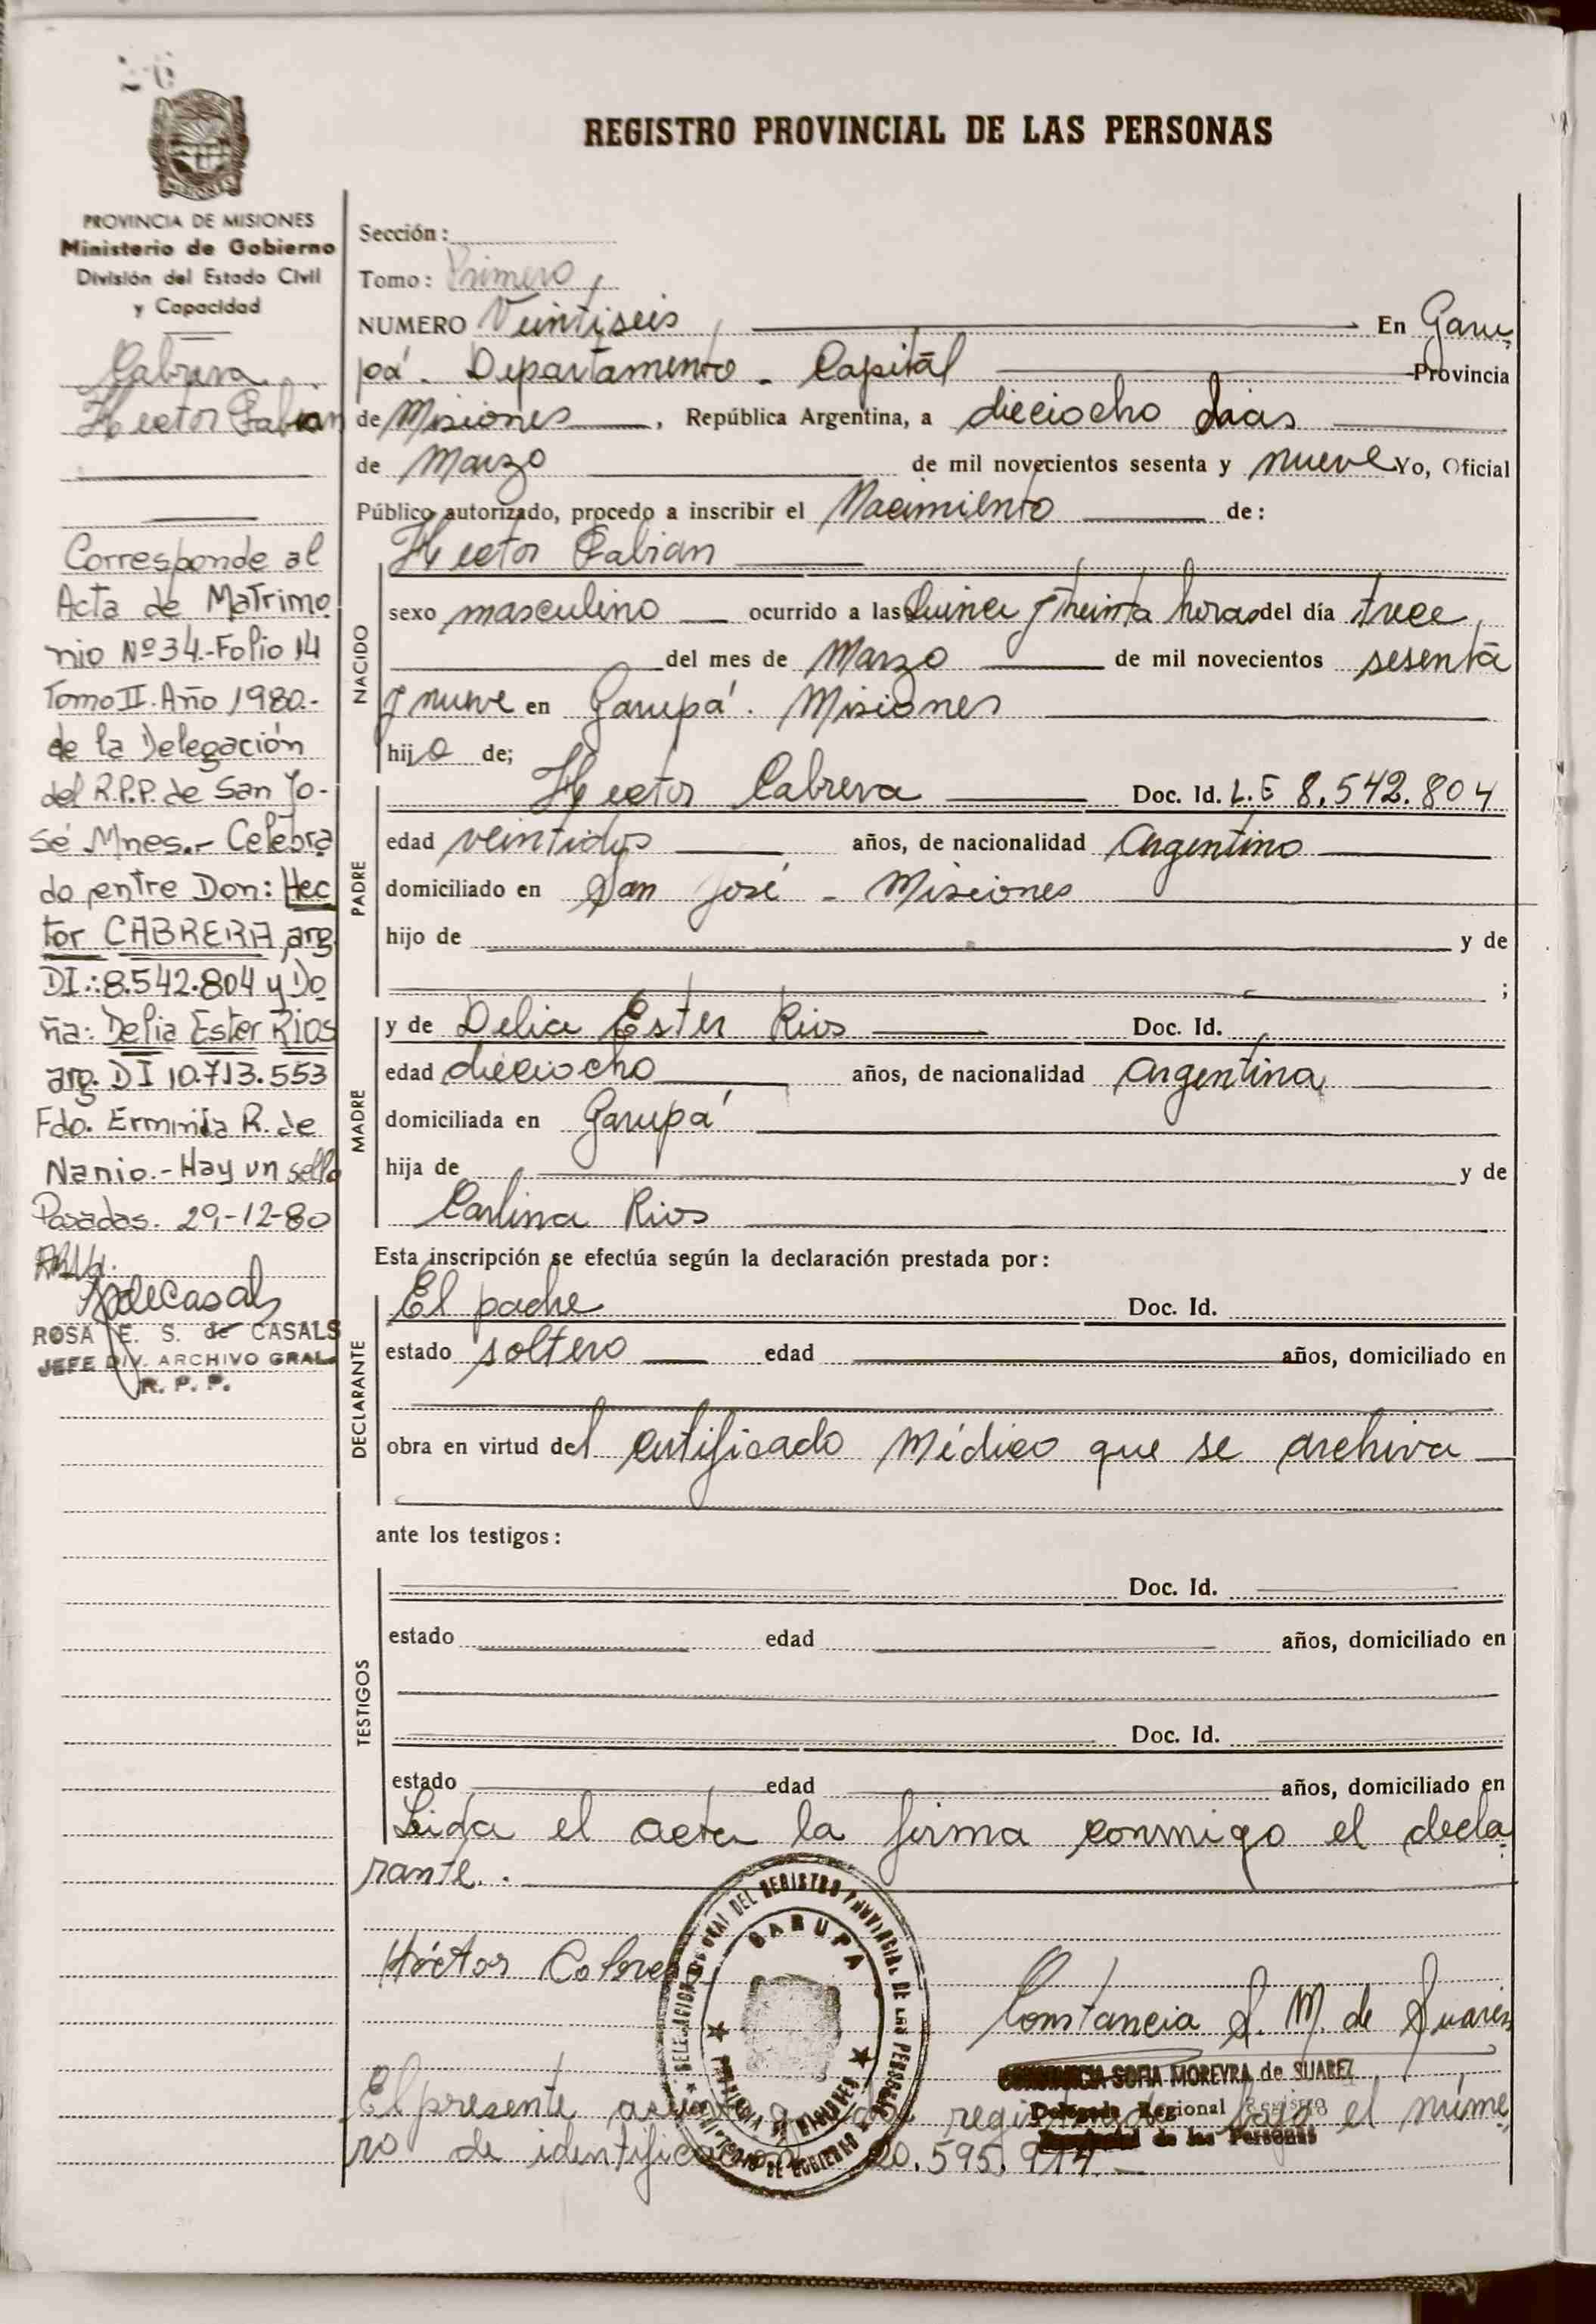 26
REGISTRO PROVINCIAL DE LAS PERSONAS
MISIONES
PROVINCIA DE MISIONES
Ministerio de Gobierno
División del Estado Civil
y Capacidad
Cabrera
Hector Fabian
Corresponde al
Acta de Matrimo
nio Nº 34.-Folio 14
Tomo II. Año 1980.-
de la Delegación
del R.P.P. de San Jo-
sé Mnes.- Celebra
do entre Don: Hec
tor CABRERA, arg.
DI.: 8.542.804 y Do
ña: Delia Ester RIOS
arg. DI 10.713.553
Fdo. Erminda R. de
Nanio.- Hay un sello
Posadas. 29-12-80
ROSA E. S. de CASALS
JEFE DIV. ARCHIVO GRAL.
R. P. P.
Sección:
Tomo: Primero
NUMERO Veintiseis En Garu
pá. Departamento - Capital Provincia
de Misiones, República Argentina, a dieciocho dias
de Marzo de mil novecientos sesenta y nueve Yo, Oficial
Público autorizado, procedo a inscribir el Nacimiento de:
Hector Fabian
NACIDO
sexo masculino ocurrido a las Quince y treinta horas del día trece
del mes de Marzo de mil novecientos sesenta
y nueve en Garupá. Misiones
hijo de;
PADRE
Hector Cabrera Doc. Id. L.E 8.542.804
edad veintidos años, de nacionalidad Argentino
domiciliado en San José - Misiones
hijo de y de
;
MADRE
y de Delia Ester Rios Doc. Id.
edad dieciocho años, de nacionalidad Argentina
domiciliada en Garupá
hija de y de
Carlina Rios
Esta inscripción se efectúa según la declaración prestada por:
DECLARANTE
El padre Doc. Id.
estado soltero edad años, domiciliado en
obra en virtud del certificado Médico que se archiva
ante los testigos:
TESTIGOS
Doc. Id.
estado edad años, domiciliado en
Doc. Id.
estado edad años, domiciliado en
Leida el acta la firma conmigo el decla
rante.
Héctor Cabrera
GARUPA
Constancia S. M. de Suarez
CONSTANCIA SOFIA MOREYRA de SUAREZ
Delegada Regional Registro
Provincial de las Personas
El presente asiento queda registrado bajo el núme
ro de identificacion 20.595.914